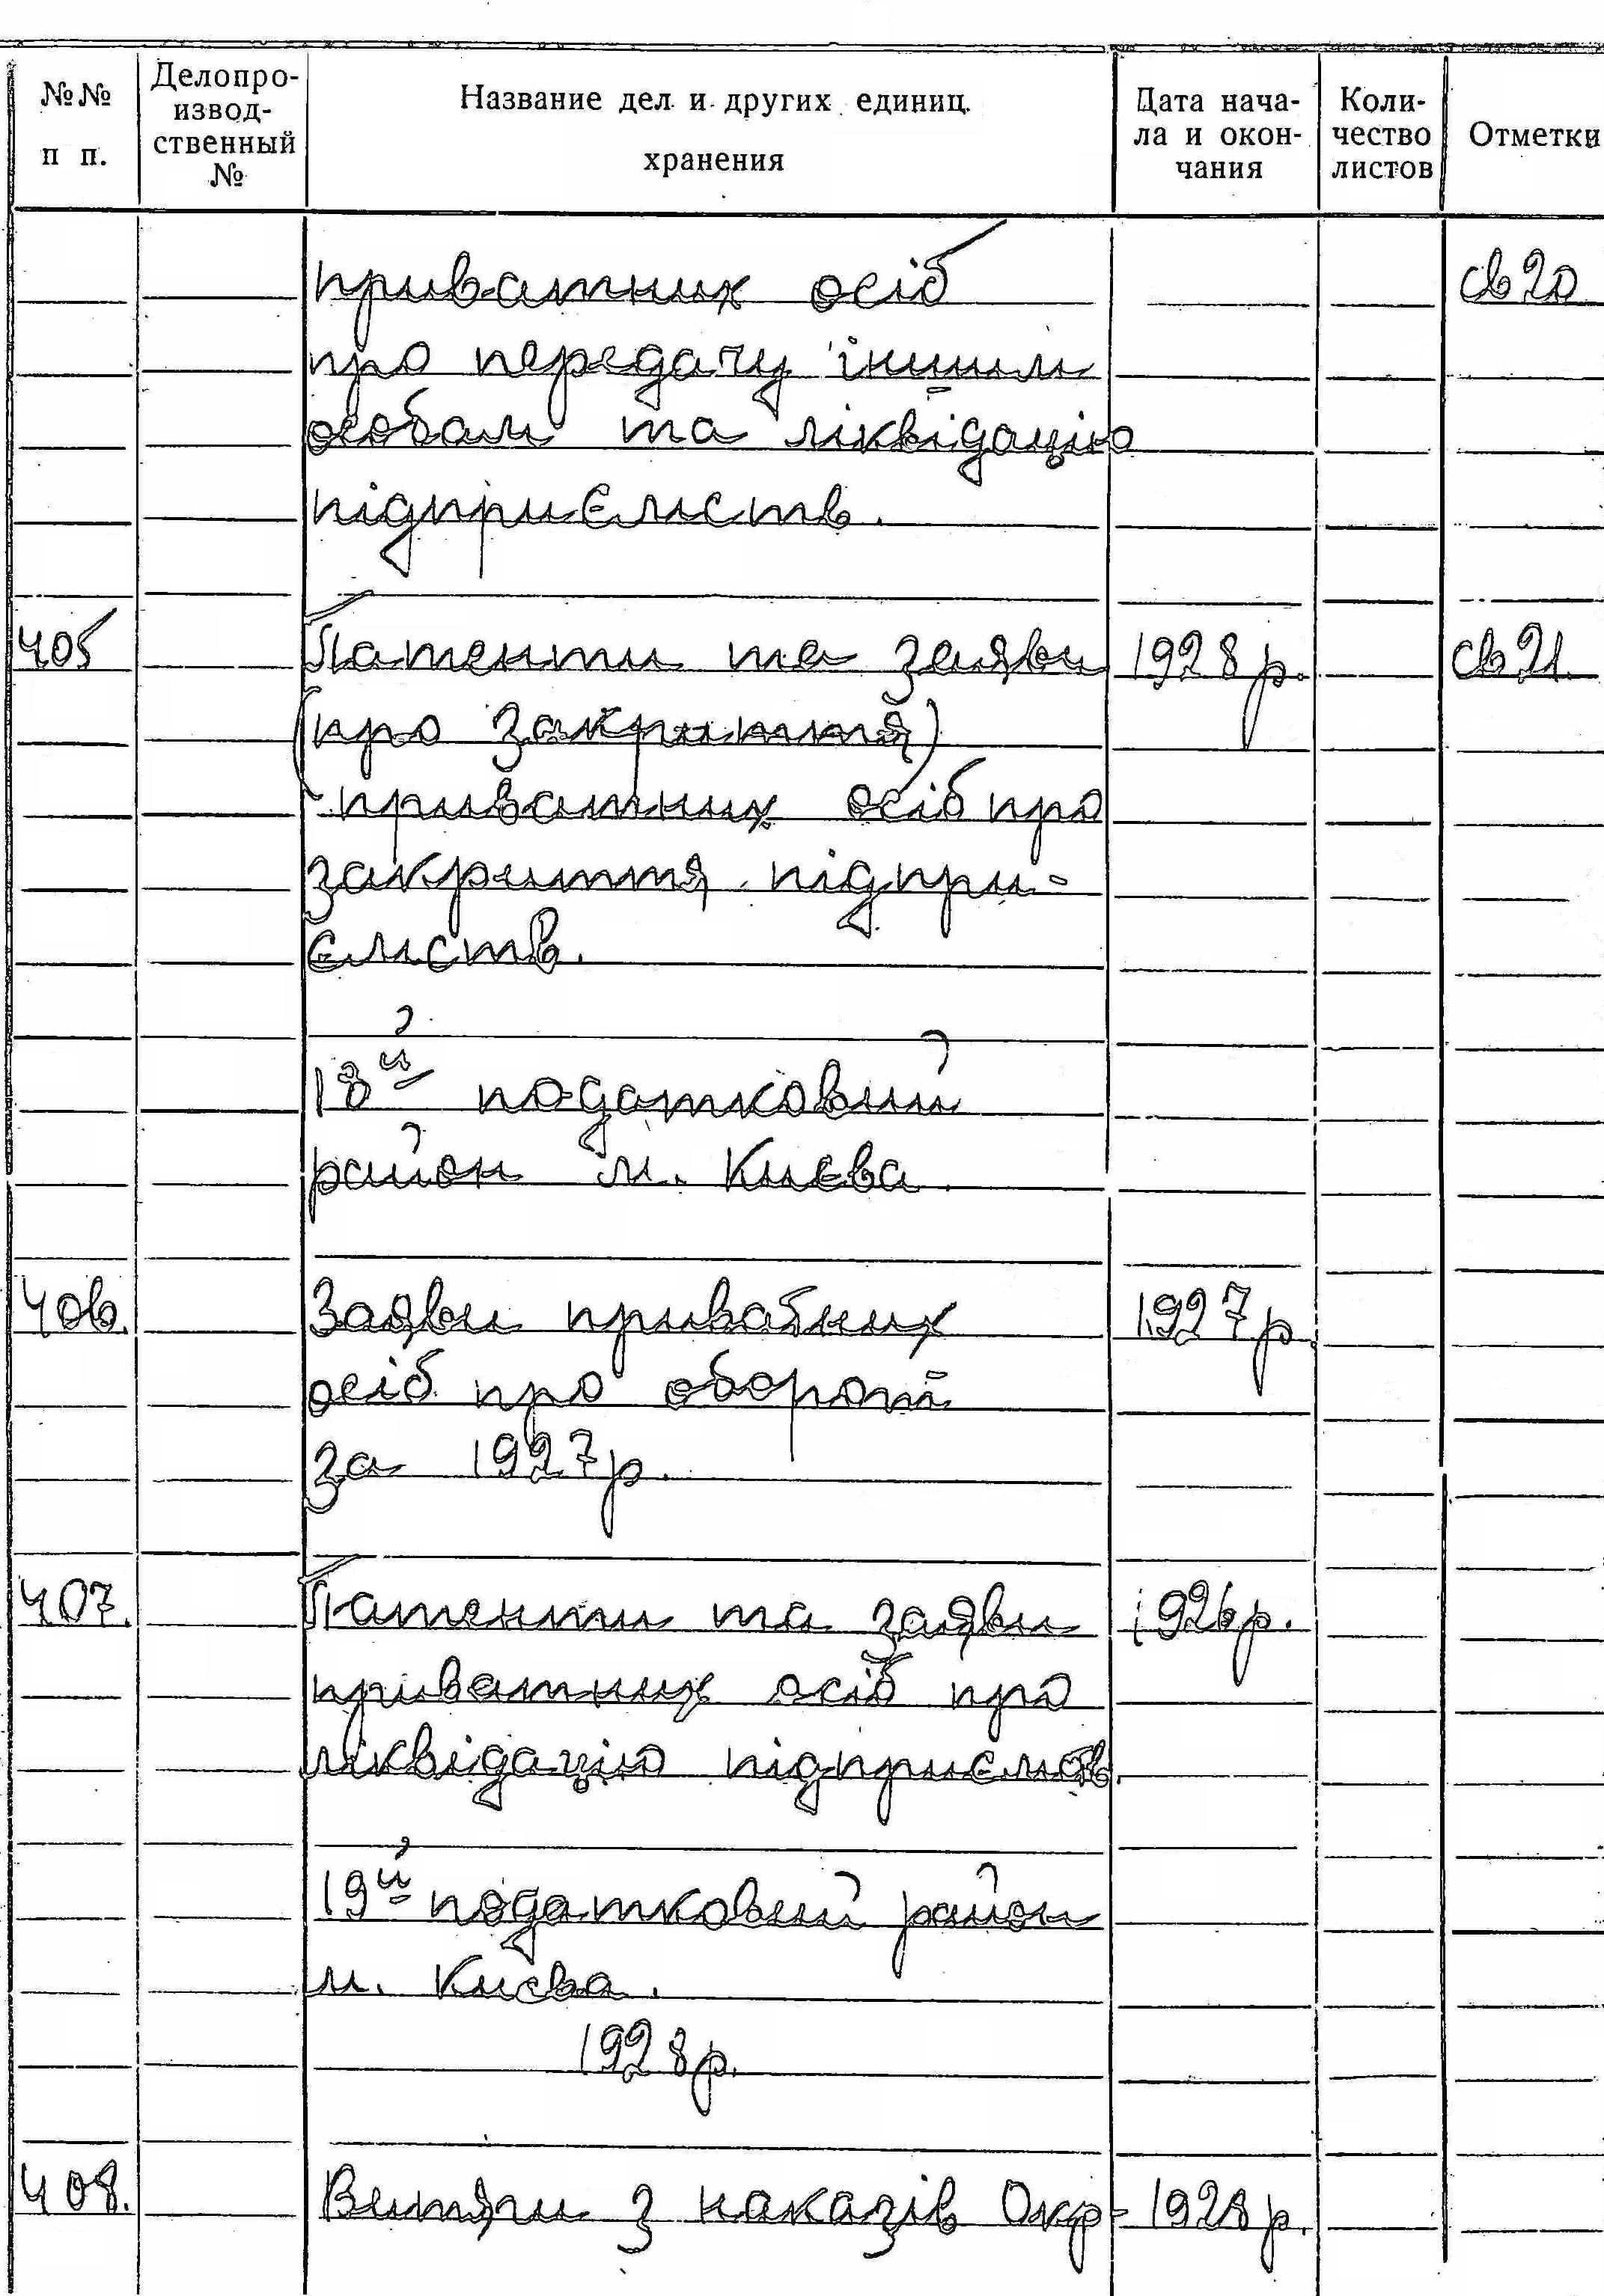 №№ п п.
Делопро-
извод-
ственный
№
Название дел и других единиц
хранения
Дата нача-
ла и окон-
чания
Коли-
чество
листов
Отметки
приватних осіб св 20
про передачу іншим
особам та ліквідацію
підприємств.
405 Патенти та заяви 1928 р. св 21.
(про закриття)
приватних осіб про
закриття підпри-
ємств.
18й податковий
район м. Києва
406. Заяви приватних 1927 р.
осіб про обороти
за 1927 р.
407. Патенти та заяви 1926 р.
приватних осіб про
ліквідацію підприємств.
19й податковий район
м. Києва.
1928 р.
408. Витяги з наказів Окр- 1928 р.